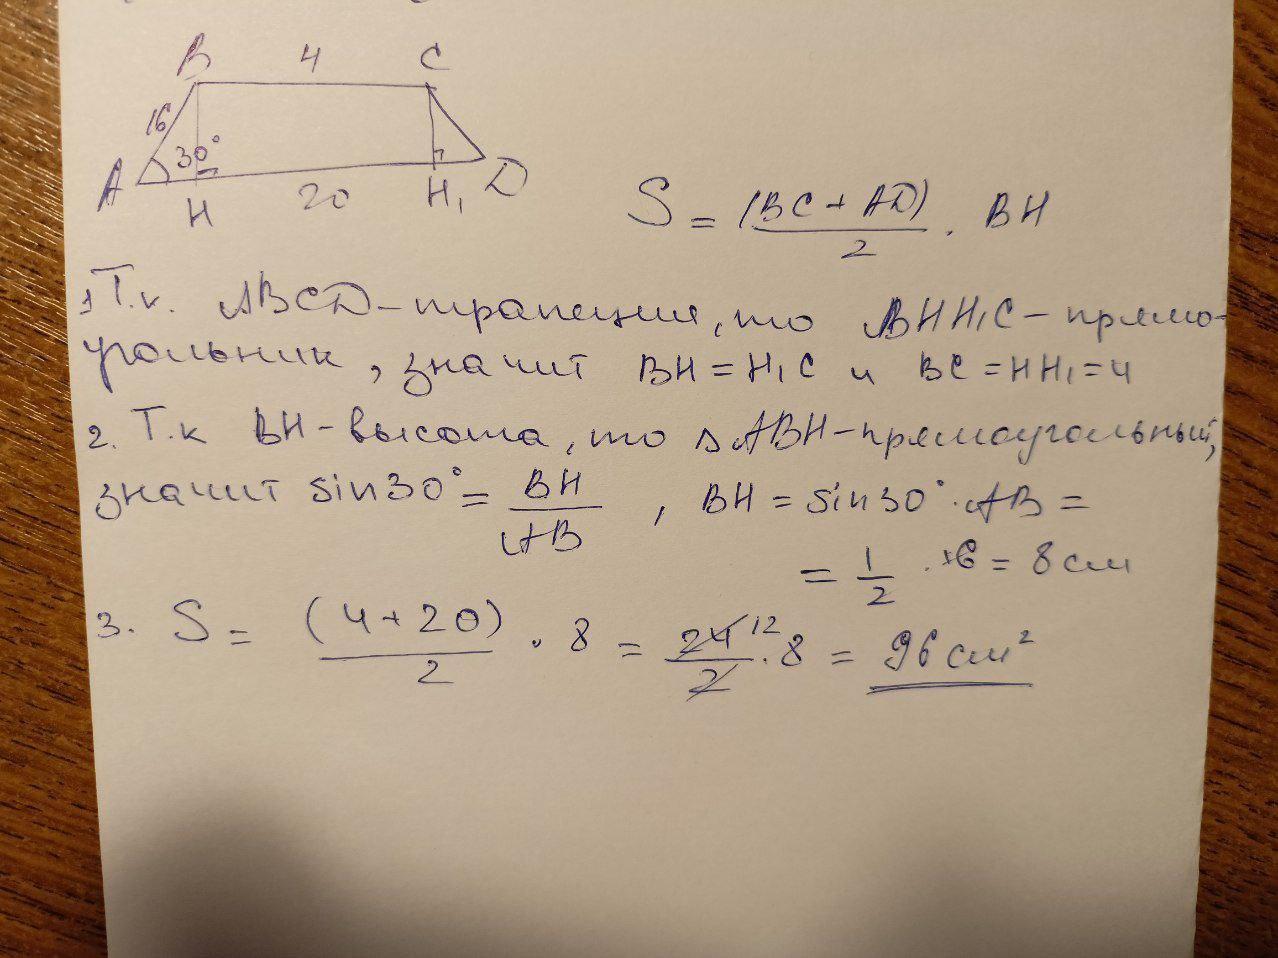 B 4 C
16
30°
A H 20 H₁ D
S = (BC + AD)/2 · BH
1 Т.к. ABCD - трапеция, то BHH₁C - прямо-
угольник, значит BH = H₁C и BC = HH₁ = 4
2. Т.к BH - высота, то △ABH - прямоугольный,
значит sin30° = BH/AB , BH = sin30° · AB =
= 1/2 · 16 = 8 см
3. S = (4 + 20)/2 · 8 = 24/2 12 · 8 = 96 см²